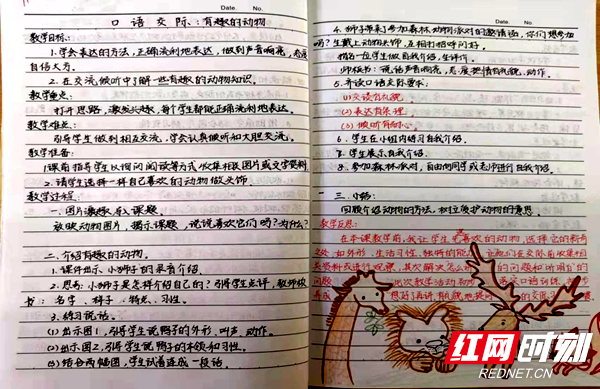 Date. No.
口语交际:有趣的动物
教学目标:
1.学会表达的方法,正确流利地表达,做到声音响亮,态度
自信大方。
2.在交流倾听中了解一些有趣的动物知识。
教学重点:
打开思路,激发兴趣,每个学生都能正确流利地表达。
教学难点:
引导学生做到相互交流,学会认真倾听和大胆交流。
教学准备:
1.课前指导学生以询问阅读等方式收集相关图片或文字资料
2.请学生选择一样自己喜欢的动物做头饰。
教学过程:
一.图片激趣,导入课题。
放映动物图片,揭示课题,说说喜欢它们吗?为什么?
二.介绍有趣的动物。
1.课件出示小狮子的录音介绍。
2.思考:小狮子是怎样介绍自己的?引导学生评,教师板
书:名字、样子、特点、习性。
3.练习说话。
(1)出示图1,引导学生说鸭子的外形、叫声、动作。
(2)出示图2,引导学生说鸭子的本领和习性。
(3)结合两幅图,学生试着连成一段话。
Date. No.
4.狮子带来了参加森林动物派对的邀请函,你们想参加
吗?生戴上动物头饰,互相打招呼问好。
指名一生学做自我介绍,生评价。
师板书:说话声音响亮,态度热情有礼貌,动作。
5.齐读口语交际要求:
(1)交谈有礼貌
(2)表达有条理
(3)倾听有耐心。
6.学生在小组内练习自我介绍。
7.学生展示自我介绍。
8.参加森林派对,自由向同学或老师进行自我介绍。
三.小结:
回顾介绍动物的方法,树立爱护动物的意思。
教学反思:
在本课教学前,我让学生喜欢的动物,选择它的新奇
之处如外形、生活习性、独特的
关资料或进行观察,其次解决怎么
问题
红网时刻
REDNET.CN